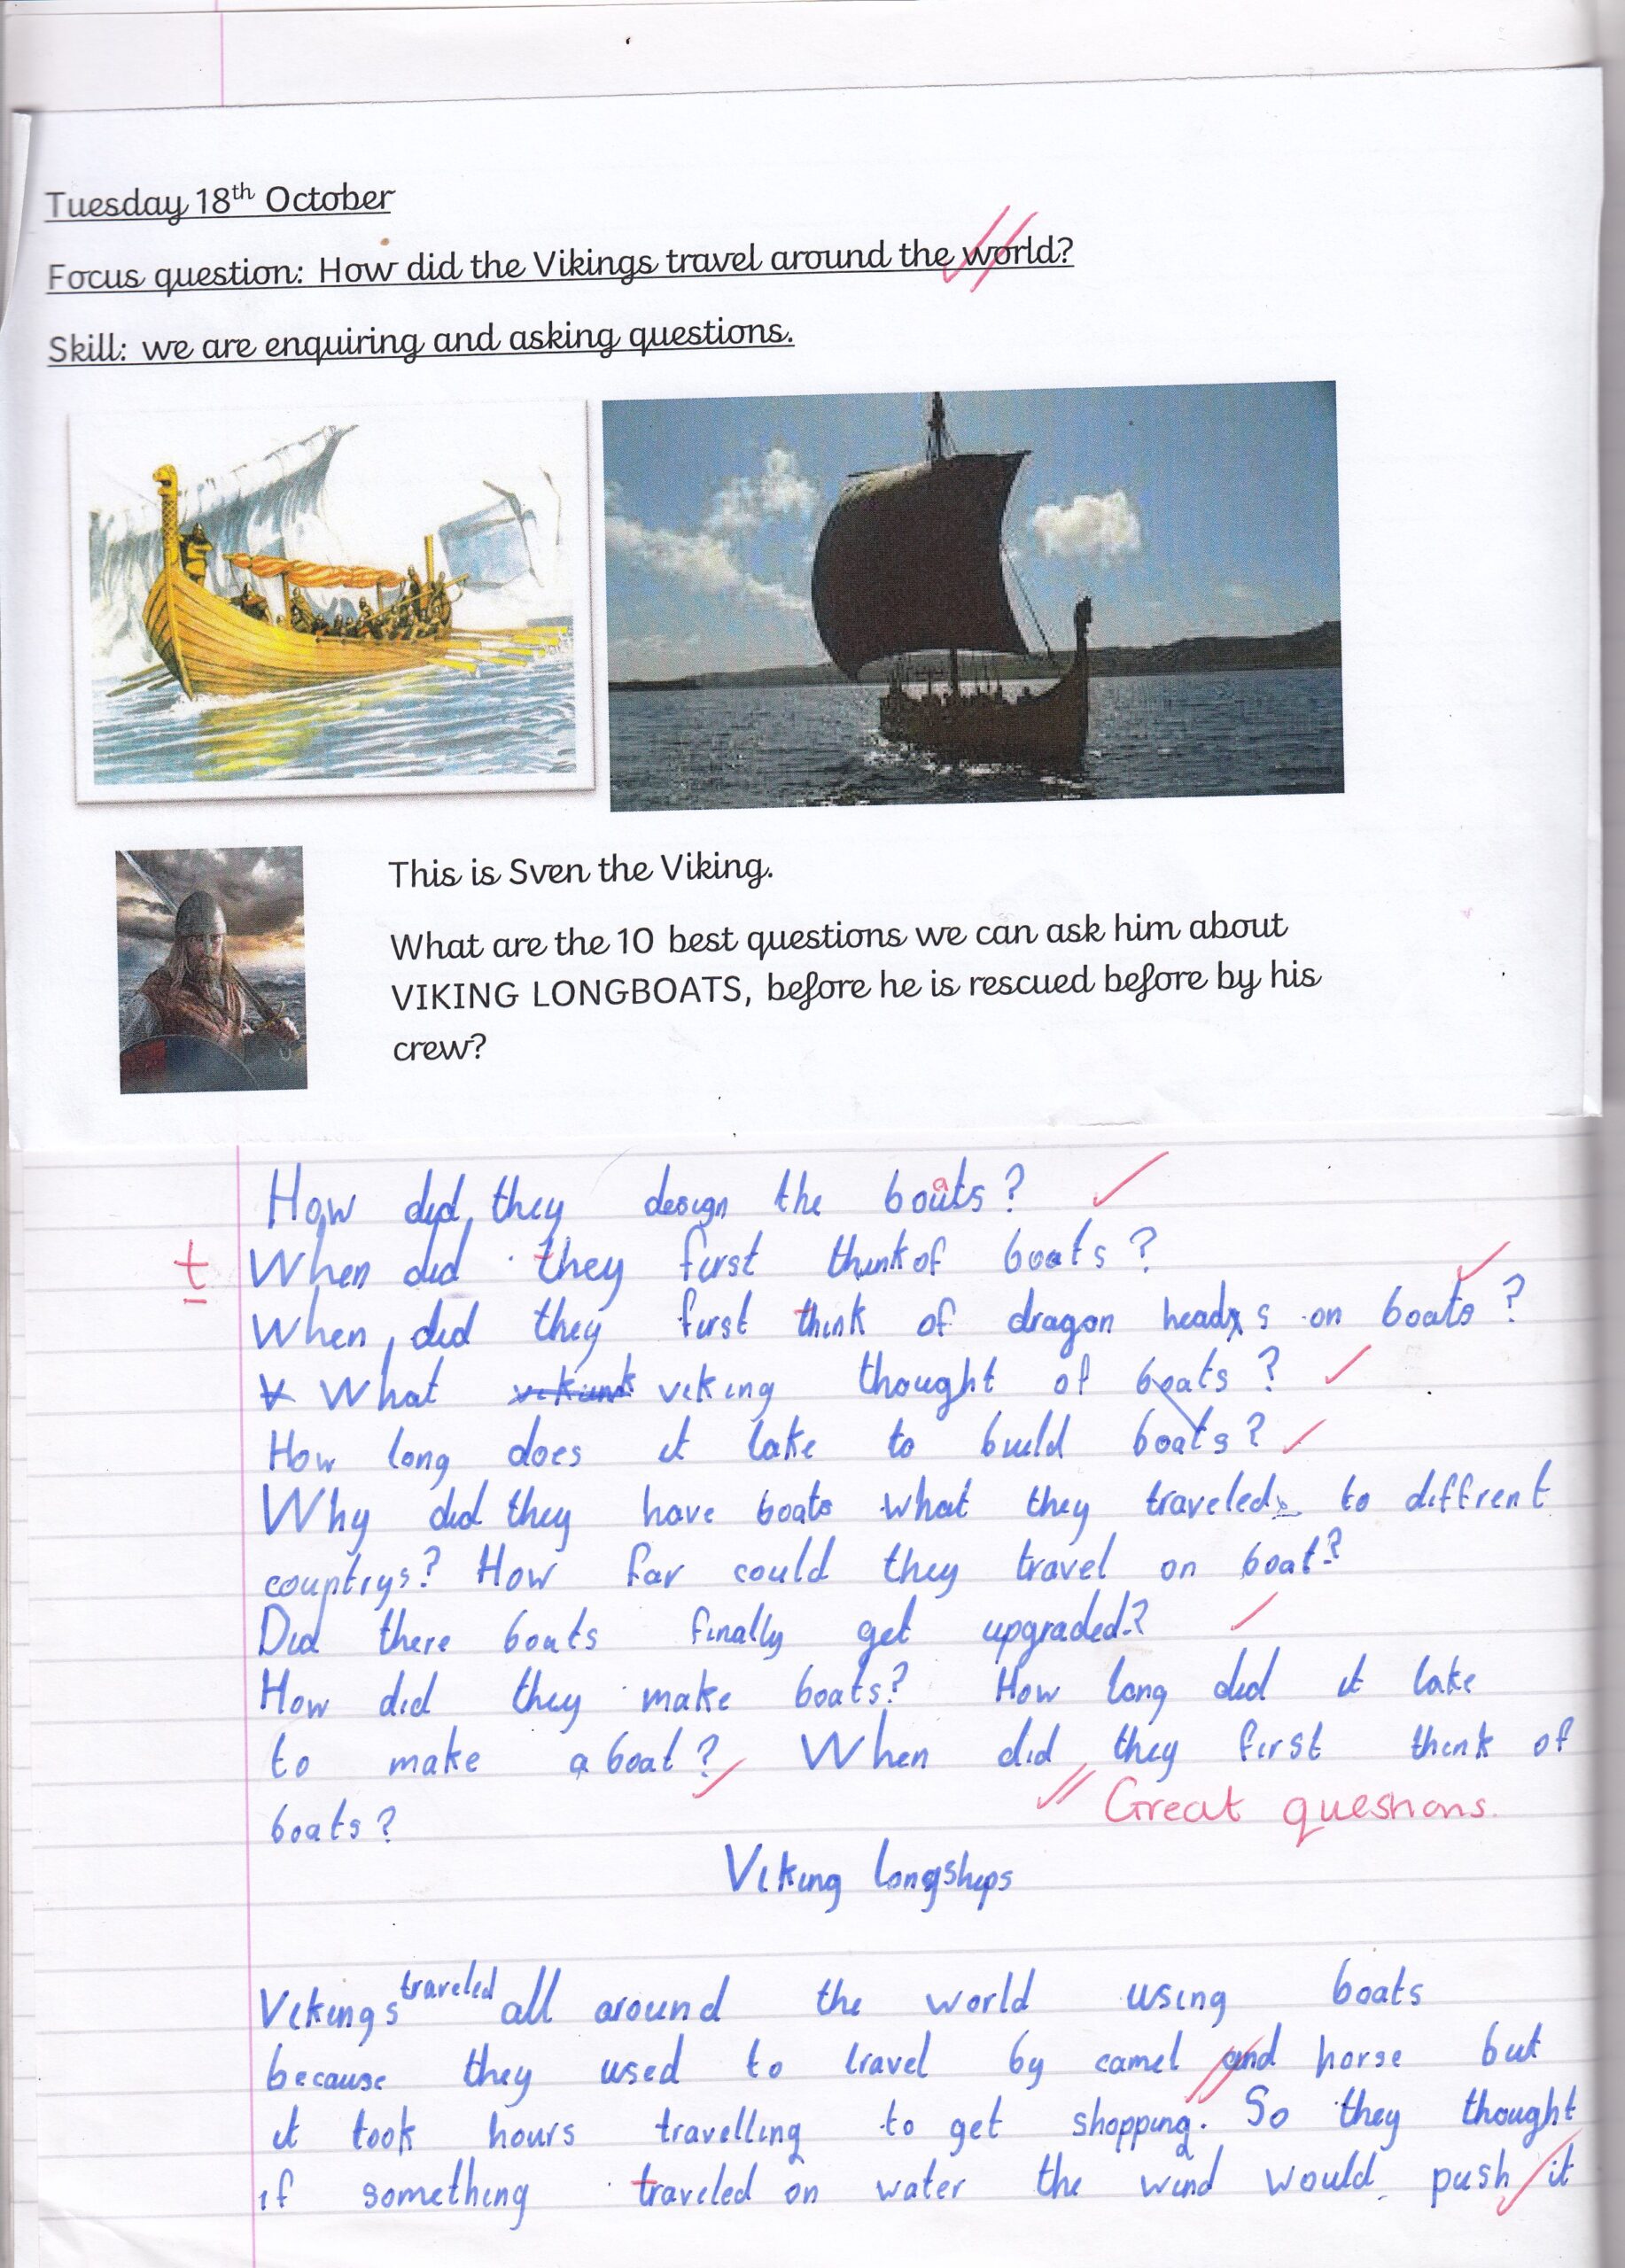 Tuesday 18th October
Focus question: How did the Vikings travel around the world?
Skill: we are enquiring and asking questions.
This is Sven the Viking.
What are the 10 best questions we can ask him about
VIKING LONGBOATS, before he is rescued before by his
crew?
How did they design the boats?
t When did they first think of boats?
When did they first think of dragon heads on boats?
What viking thought of boats?
How long does it take to build boats?
Why did they have boats what they traveled to diffrent
countrys? How far could they travel on boat?
Did there boats finally get upgraded?
How did they make boats? How long did it take
to make a boat? When did they first think of
Great questions.
boats?
Viking longships
Vikings traveled all around the world using boats
because they used to travel by camel and horse but
it took hours travelling to get shopping. So they thought
if something traveled on water the wind would push it